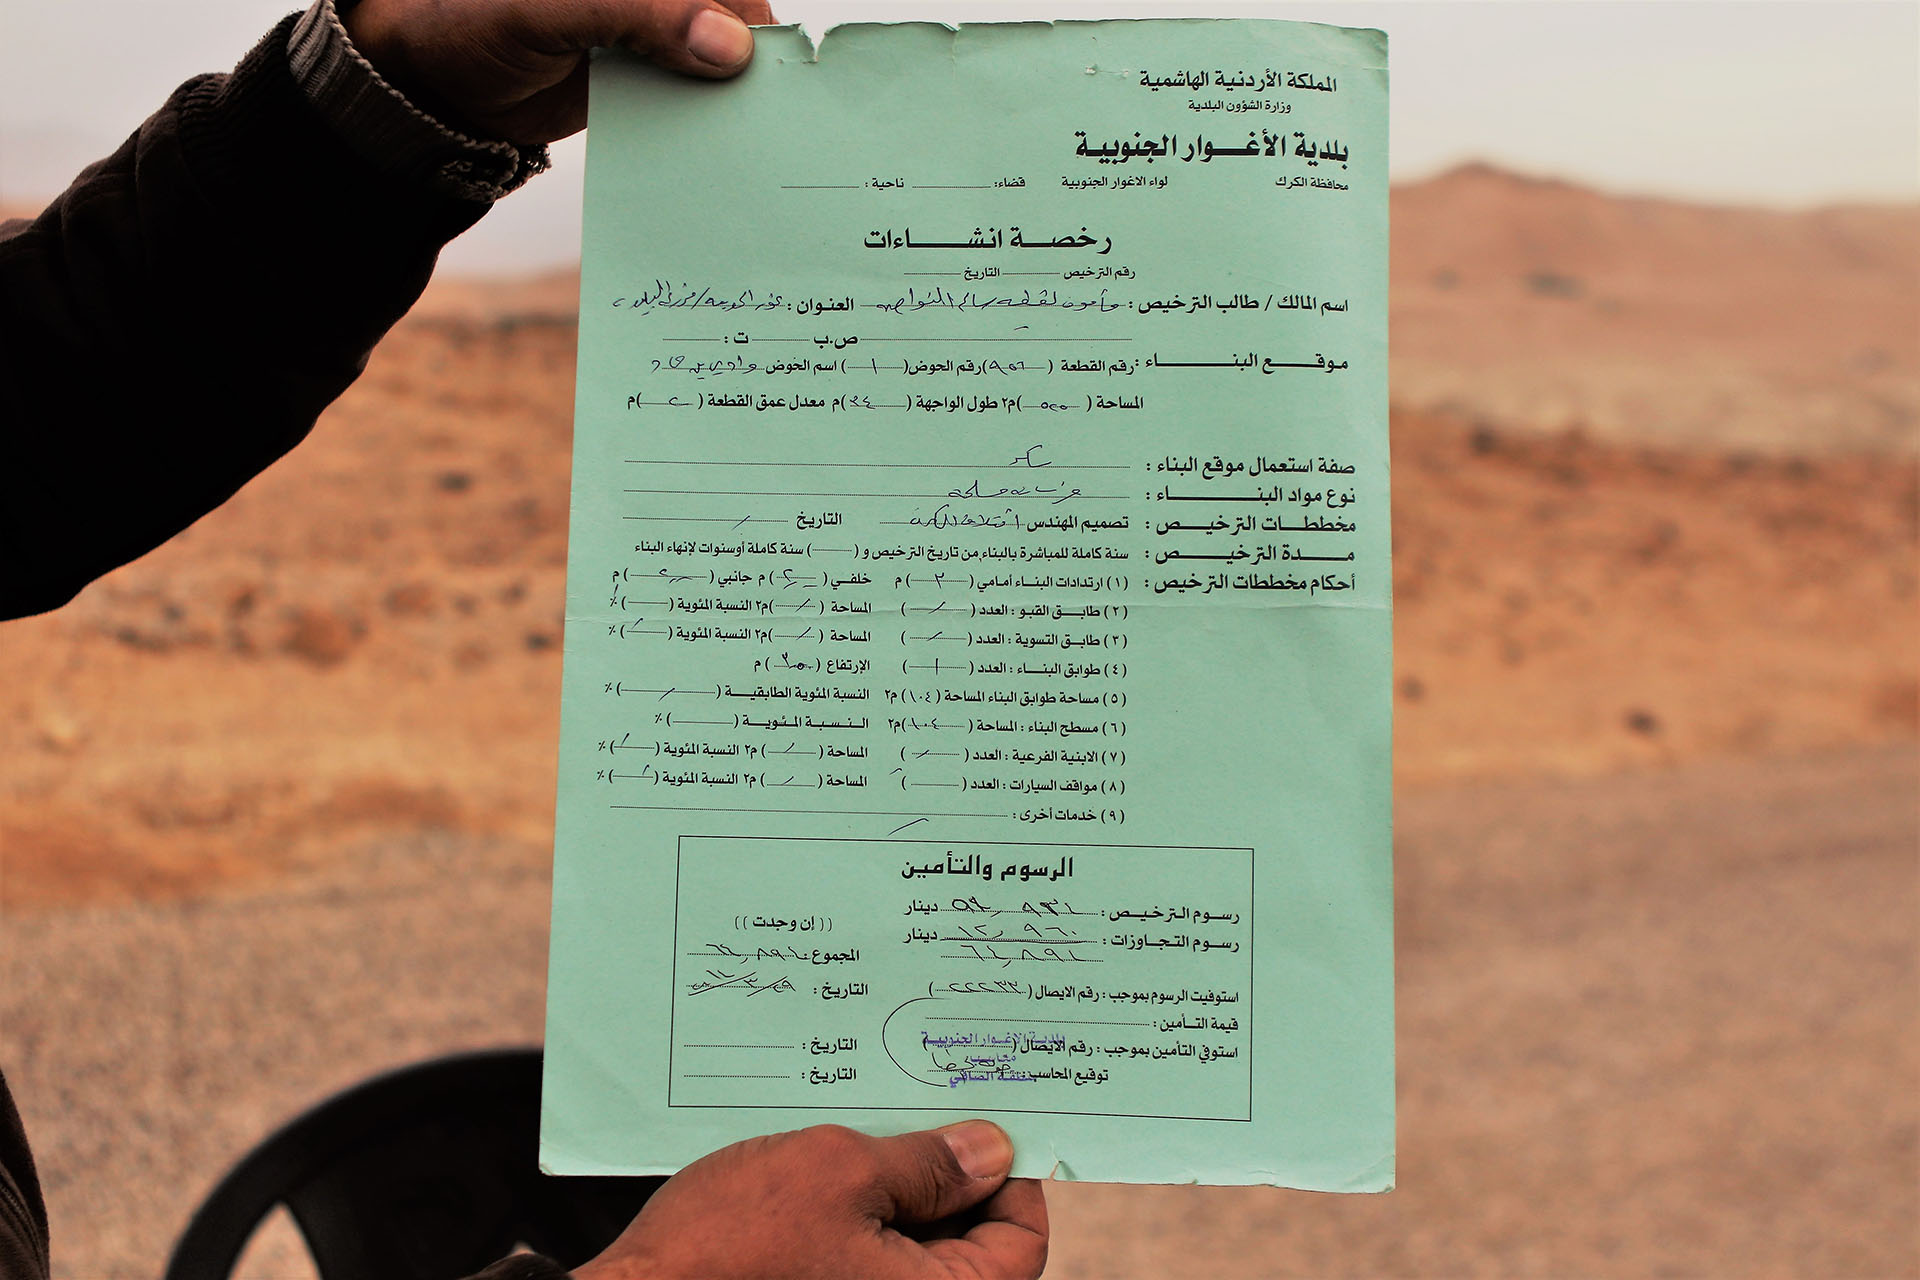 المملكة الأردنية الهاشمية
وزارة الشؤون البلدية
بلدية الأغوار الجنوبية
محافظة الكرك لواء الاغوار الجنوبية قضاء: ناحية :
رخصة انشاءات
رقم الترخيص التاريخ
اسم المالك / طالب الترخيص : مأمون سالم النواصره العنوان :
ص.ب ت :
موقع البناء : رقم القطعة (٩٥٦) رقم الحوض (١) اسم الحوض وادي
المساحة ( ) م٢ طول الواجهة (٢٤) م معدل عمق القطعة ( ) م
صفة استعمال موقع البناء : سكن
نوع مواد البناء : خرسانه مسلحة
مخططات الترخيص : تصميم المهندس التاريخ /
مدة الترخيص : سنة كاملة للمباشرة بالبناء من تاريخ الترخيص و ( ) سنة كاملة أوسنوات لإنهاء البناء
أحكام مخططات الترخيص : (١) ارتدادات البناء أمامي (٣) م خلفي ( ) م جانبي ( ) م
(٢) طابق القبو : العدد ( / ) المساحة ( / ) م٢ النسبة المئوية ( / ) ٪
(٣) طابق التسوية : العدد ( / ) المساحة ( / ) م٢ النسبة المئوية ( / ) ٪
(٤) طوابق البناء : العدد (١) الإرتفاع ( ) م
(٥) مساحة طوابق البناء المساحة (١٠٤) م٢ النسبة المئوية الطابقية ( / ) ٪
(٦) مسطح البناء : المساحة (١٠٤) م٢ النسبة المئوية ( ) ٪
(٧) الابنية الفرعية : العدد ( / ) المساحة ( / ) م٢ النسبة المئوية ( / ) ٪
(٨) مواقف السيارات : العدد ( ) المساحة ( / ) م٢ النسبة المئوية ( / ) ٪
(٩) خدمات أخرى : /
الرسوم والتأمين
رسوم الترخيص : دينار
(( إن وجدت ))
رسوم التجاوزات : ١٢,٩٦٠ دينار
المجموع :
استوفيت الرسوم بموجب : رقم الايصال (٢٢٢٣٣) التاريخ :
قيمة التأمين :
استوفي التأمين بموجب : رقم الايصال ( ) التاريخ :
توقيع المحاسب : التاريخ :
بلدية الاغوار الجنوبية
محاسب
منطقة الصافي